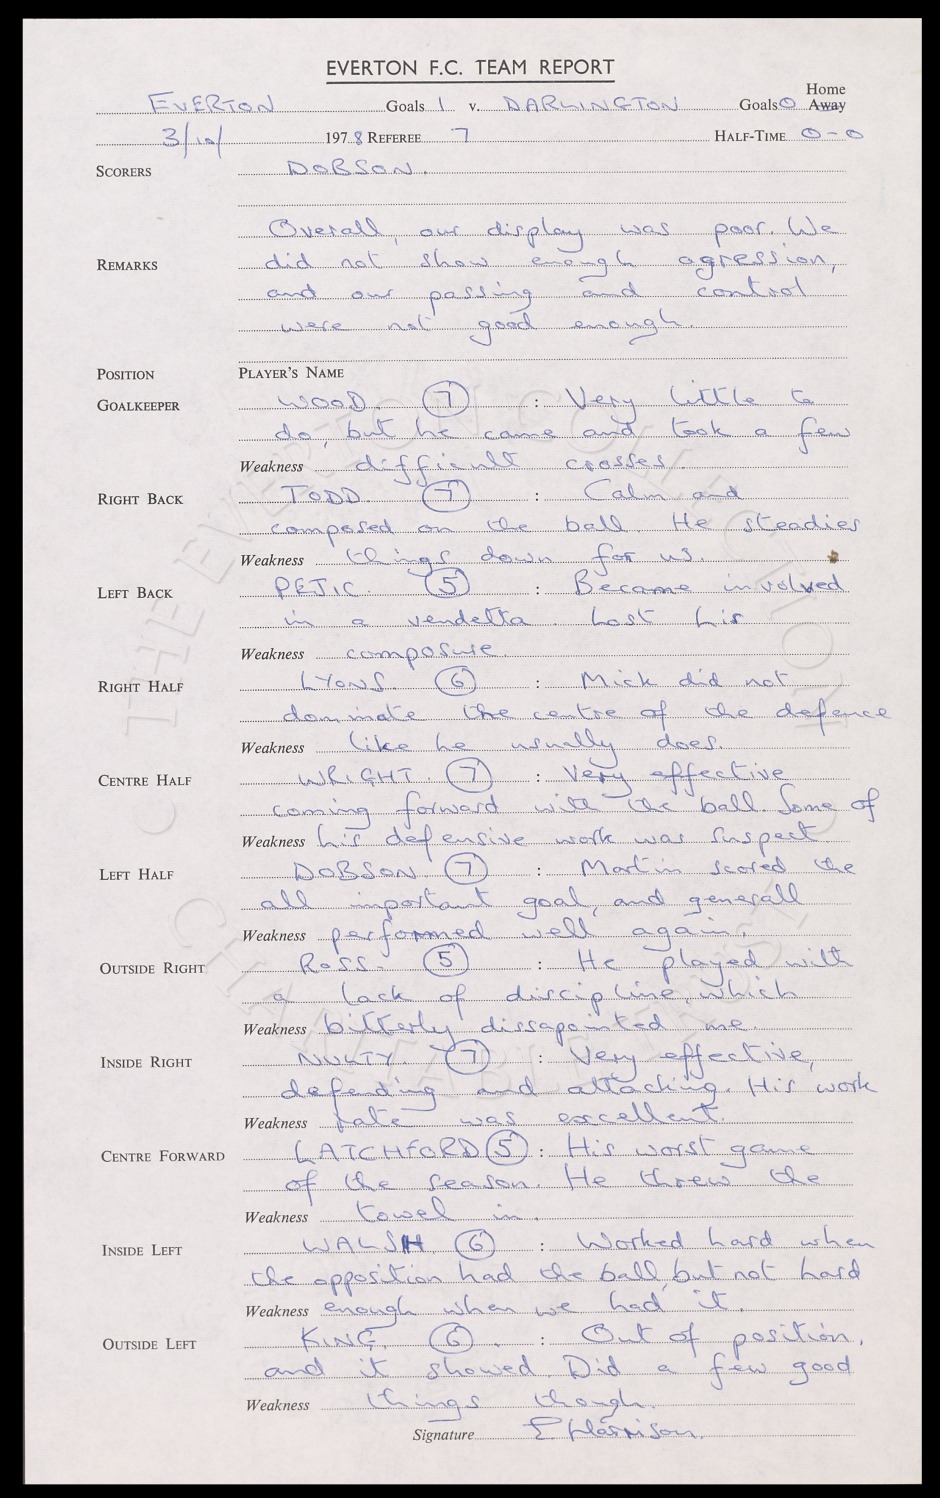 EVERTON F.C. TEAM REPORT
Home
EVERTON Goals 1 v. DARLINGTON Goals 0 Away
3/10/ 1978 REFEREE 7 HALF-TIME 0-0
SCORERS DOBSON.
Overall, our display was poor. We
REMARKS did not show enough agression,
and our passing and control
were not good enough.
POSITION PLAYER'S NAME
GOALKEEPER WOOD. 7 : Very little to
do, but he came and took a few
Weakness difficult crosses.
RIGHT BACK TODD. 7 : Calm and
composed on the ball. He steadies
Weakness things down for us.
LEFT BACK PEJIC. 5 : Became involved
in a vendetta. Lost his
Weakness composure.
RIGHT HALF LYONS. 6 : Mick did not
dominate the centre of the defence
Weakness like he usually does.
CENTRE HALF WRIGHT. 7 : Very effective
coming forward with the ball. Some of
Weakness his defensive work was suspect.
LEFT HALF DOBSON 7 : Martin scored the
all important goal, and generall
Weakness performed well again.
OUTSIDE RIGHT ROSS. 5 : He played with
a lack of discipline, which
Weakness bitterly dissapointed me.
INSIDE RIGHT NULTY. 7 : Very effective,
defending and attacking. His work
Weakness rate was excellent.
CENTRE FORWARD LATCHFORD 5 : His worst game
of the season. He threw the
Weakness towel in.
INSIDE LEFT WALSH 6 : Worked hard when
the opposition had the ball, but not hard
Weakness enough when we had it.
OUTSIDE LEFT KING. 6. : Out of position,
and it showed. Did a few good
Weakness things though.
Signature E Harrison.
THE EVERTON COLLECTION CHARITABLE TRUST